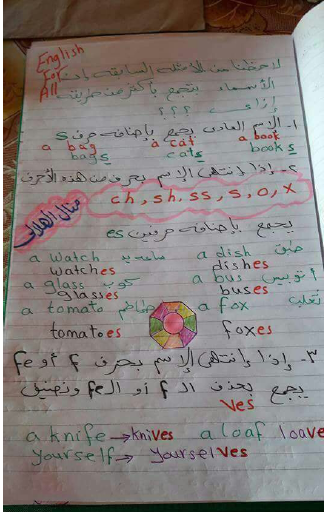 English
For
All
لاحظنا من الأمثلة السابقة إن
الأسماء بتجمع بأكثر من طريقة
إزاى ؟؟؟
١- الإسم العادى يجمع بإضافة حرف s
a bag a cat a book
bags cats books
٢- إذا إنتهى الإسم بحرف من هذه الأحرف
ch, sh, ss, s, o, x
منال الهلالى
يجمع بإضافة حرفين es
a watch ساعة يد a dish طبق
watches dishes
a glass كوب a bus أتوبيس
glasses buses
a tomato طماطم a fox ثعلب
tomatoes foxes
٣- إذا إنتهى الإسم بحرف f أو fe
يجمع بحذف الـ f أو الـ fe ونضيف
ves
a knife → knives a loaf loave
yourself → yourselves